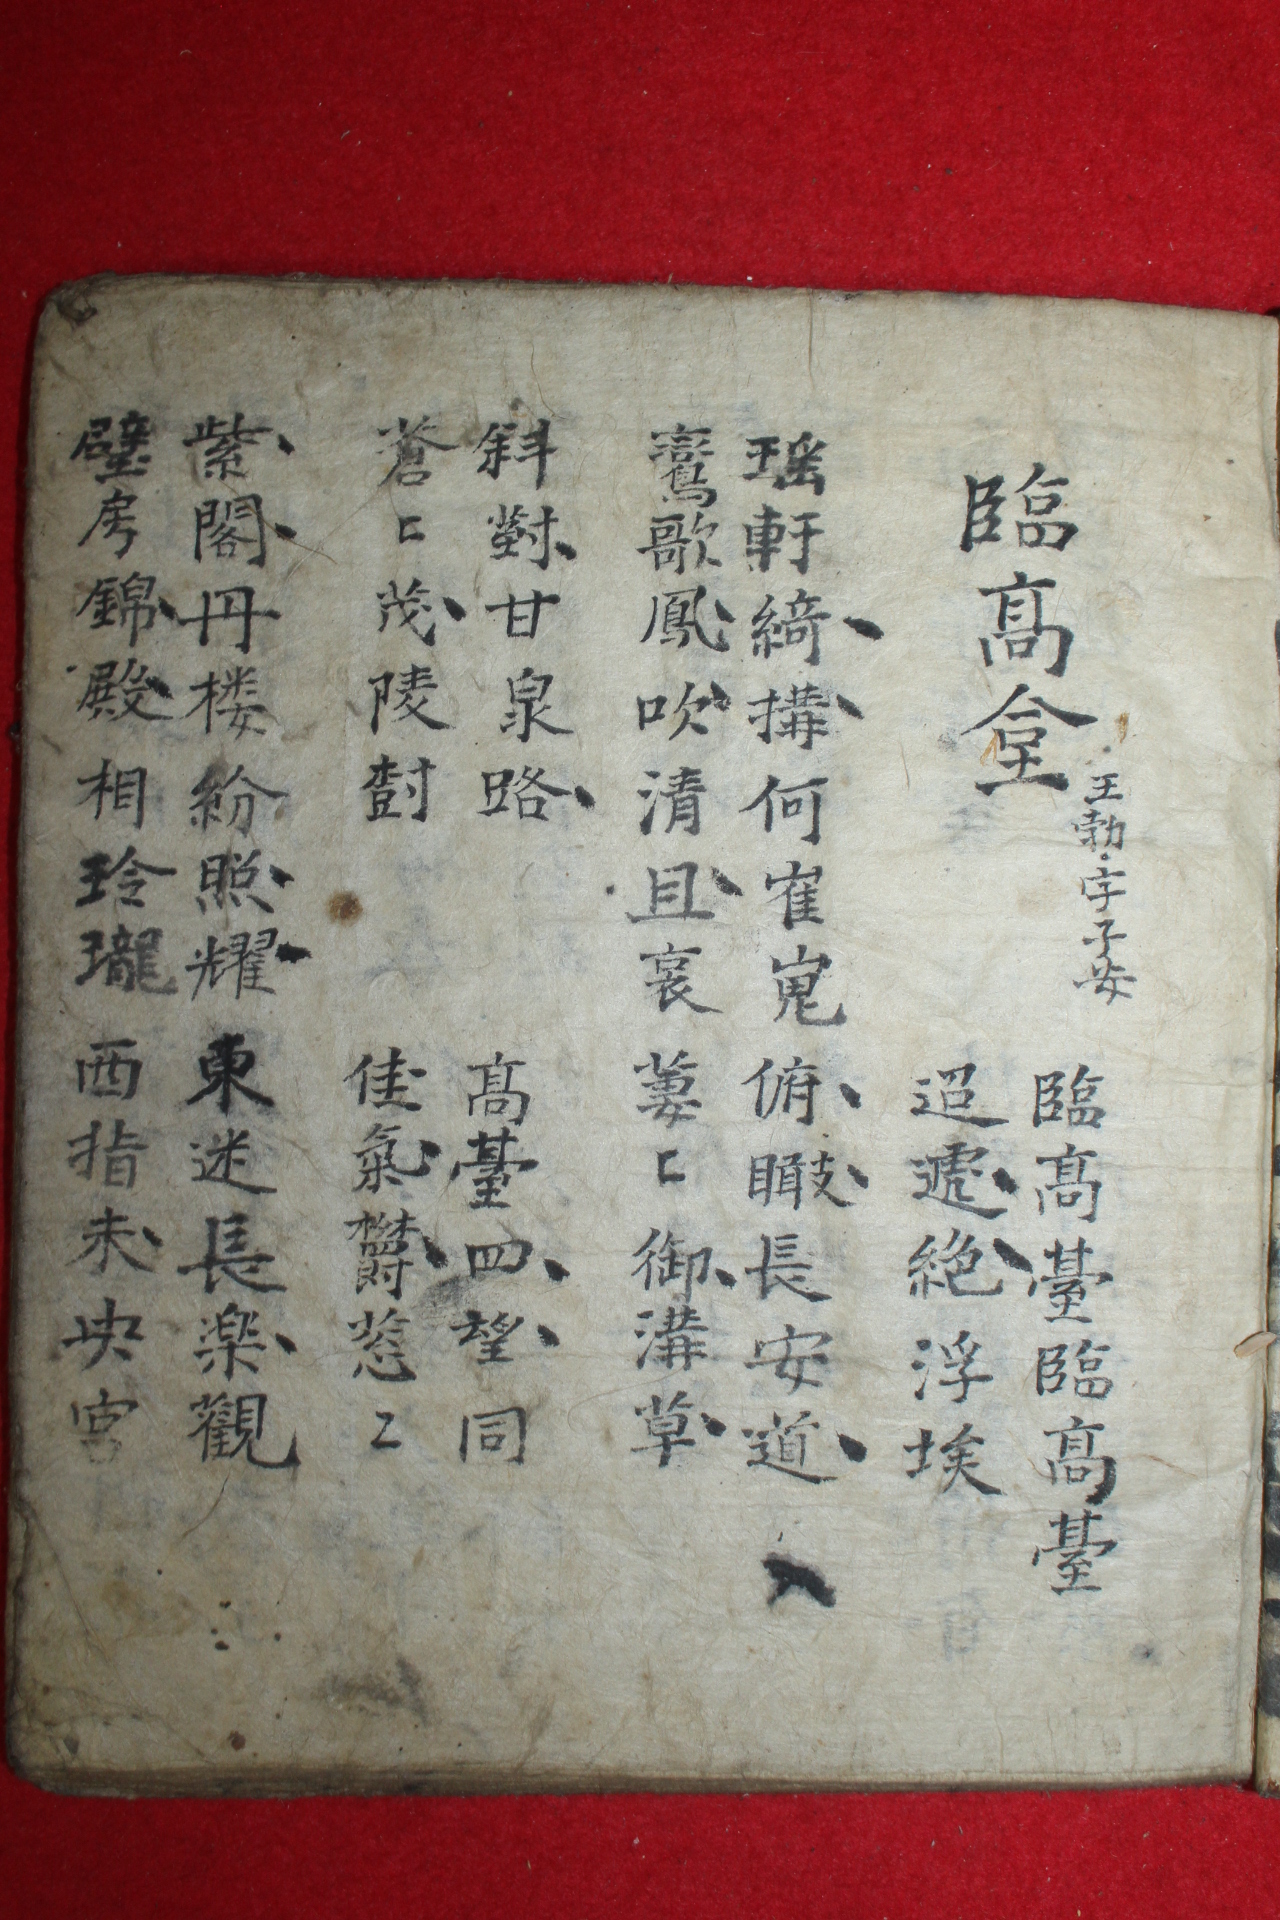 臨高臺
王勃字子安
臨高臺臨高臺
迢遞絕浮埃
瑤軒綺構何崔嵬
鸞歌鳳吹清且哀
俯瞰長安道
萋〻御溝草
斜對甘泉路
蒼〻茂陵樹
高臺四望同
佳氣鬱葱〻
紫閣丹楼紛照耀
璧房錦殿相玲瓏
東迷長楽觀
西指未央宮